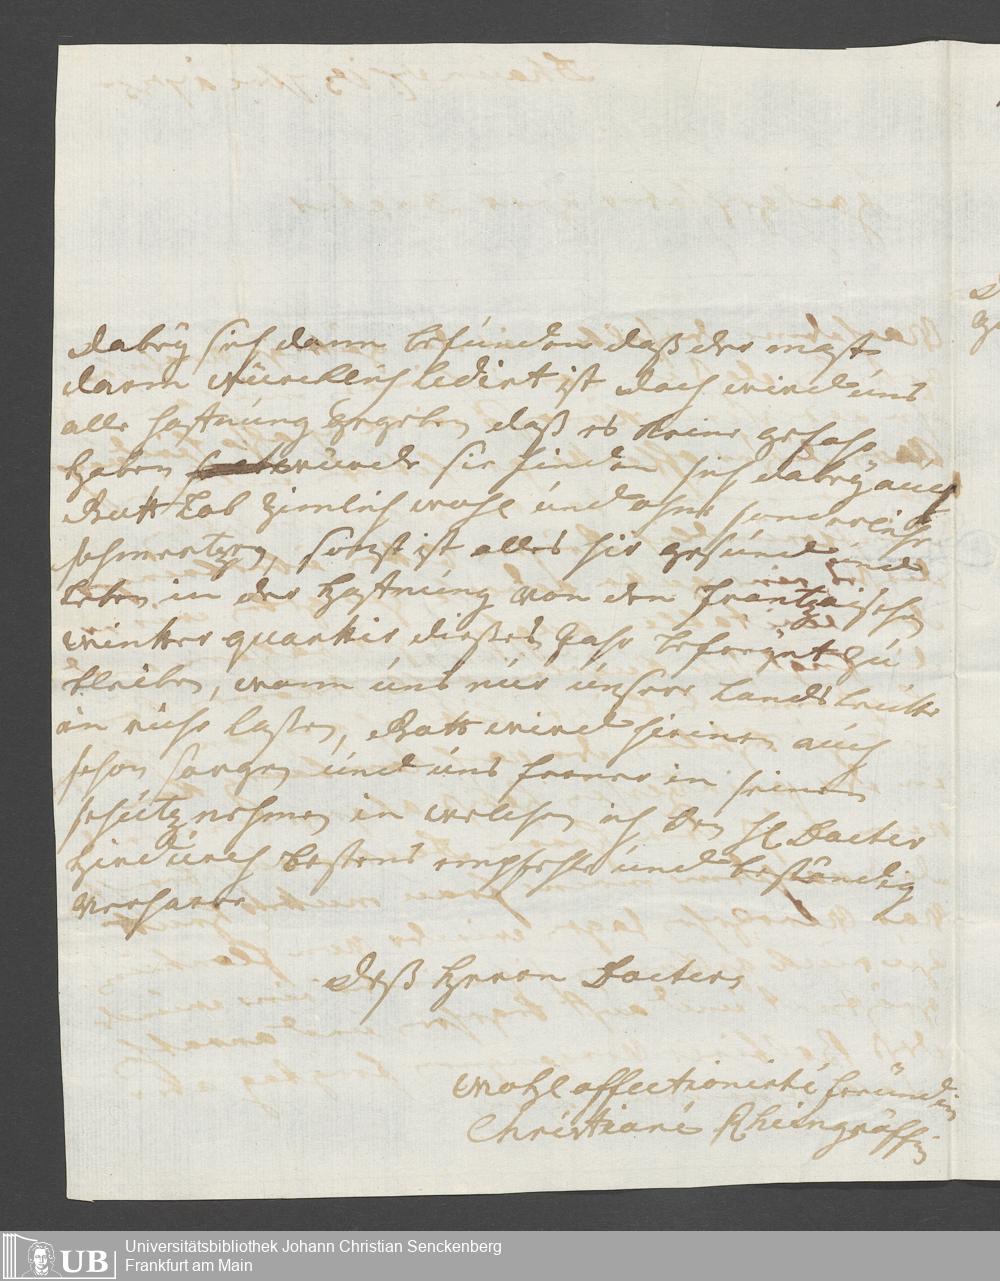 dabeÿ sich dann befunden daß der mast
darm würcklich ledirt ist doch wird uns
alle hoffnung gegeben daß es keine gefahr
haben würde sie finden sich dabeÿ auch
Gott Lob zimlich wohl und ohne sonderliche
schmertzen, sonst ist alles hie gesund und
leben in der hoffnung von den frantzöischen
winter quartir dießes Jahr befreyt zu
bleiben, wann uns nur unsere landsleütte
in ruhe laßen, Gott wird hirinen auch
schon sorgen und uns ferner in seinen
schutz nehmen in welchen ich den H Docter
hirdurch bestens empfehle und beständig
verharre
Deß Herren Docters
wohl affectionirte freündin
Christiane Rheingräffin
UB
Universitätsbibliothek Johann Christian Senckenberg
Frankfurt am Main